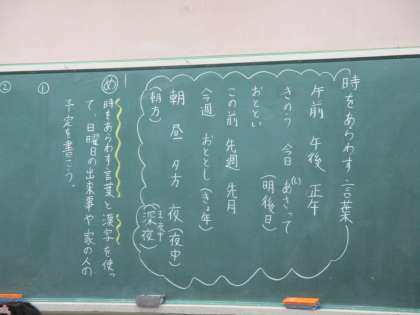 時をあらわす言葉
午前 午後 正午
きのう 今日 あさって
(明後日)
おととい
この前 先週 先月
今週 おととし(きょ年)
朝 昼 夕方 夜(夜中)
(朝方)
(深夜)
め
時をあらわす言葉と漢字を使っ
て、日曜日の出来事や家の人の
予定を書こう。
①
②